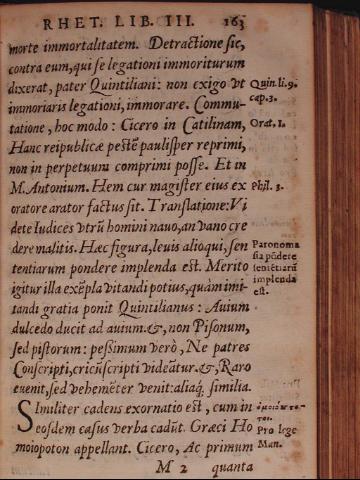 RHET. LIB. III. 163
morte immortalitatem. Detractione sic,
contra eum, qui se legationi immoriturum
dixerat, pater Quintiliani: non exigo vt
immoriaris legationi, immorare. Commu-
tatione, hoc modo: Cicero in Catilinam,
Hanc reipublicæ pestē paulisper reprimi,
non in perpetuum comprimi posse. Et in
M. Antonium. Hem cur magister eius ex
oratore arator factus sit. Translatione: Vi
dete Iudices vtrū homini nauo, an vano cre
dere malitis. Hæc figura, leuis alioqui, sen
tentiarum pondere implenda est. Merito
igitur illa exēpla vitandi potius, quàm imi-
tandi gratia ponit Quintilianus: Auium
dulcedo ducit ad auium. &, non Pisonum,
sed pistorum: pessimum verò, Ne patres
Conscripti, circūscripti videātur. &, Raro
euenit, sed vehemēter venit: aliaq́. similia.
Similiter cadens exornatio est, cum in
eosdem casus verba cadūt. Græci Ho
moiopoton appellant. Cicero, Ac primum
M 2 quanta
Quin. li. 9.
cap. 3.
Orat. 1.
Phil. 3.
Paronoma
sia pōdere
sentētiarū
implenda
est.
Pro lege
Man.